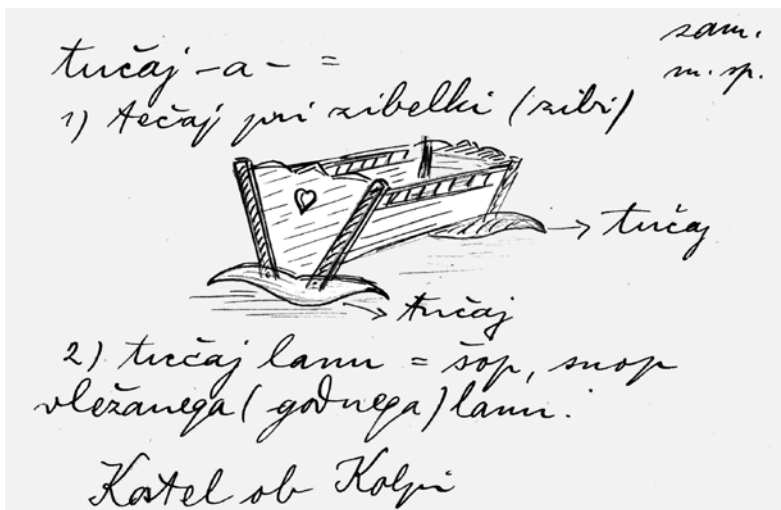 tučaj -a- =
sam.
m. sp.
1) tečaj pri zibelki (zibi)
→ tučaj
→ tučaj
2) tučaj lanu = šop, snop
vležanega (godnega) lanu.
Kostel ob Kolpi